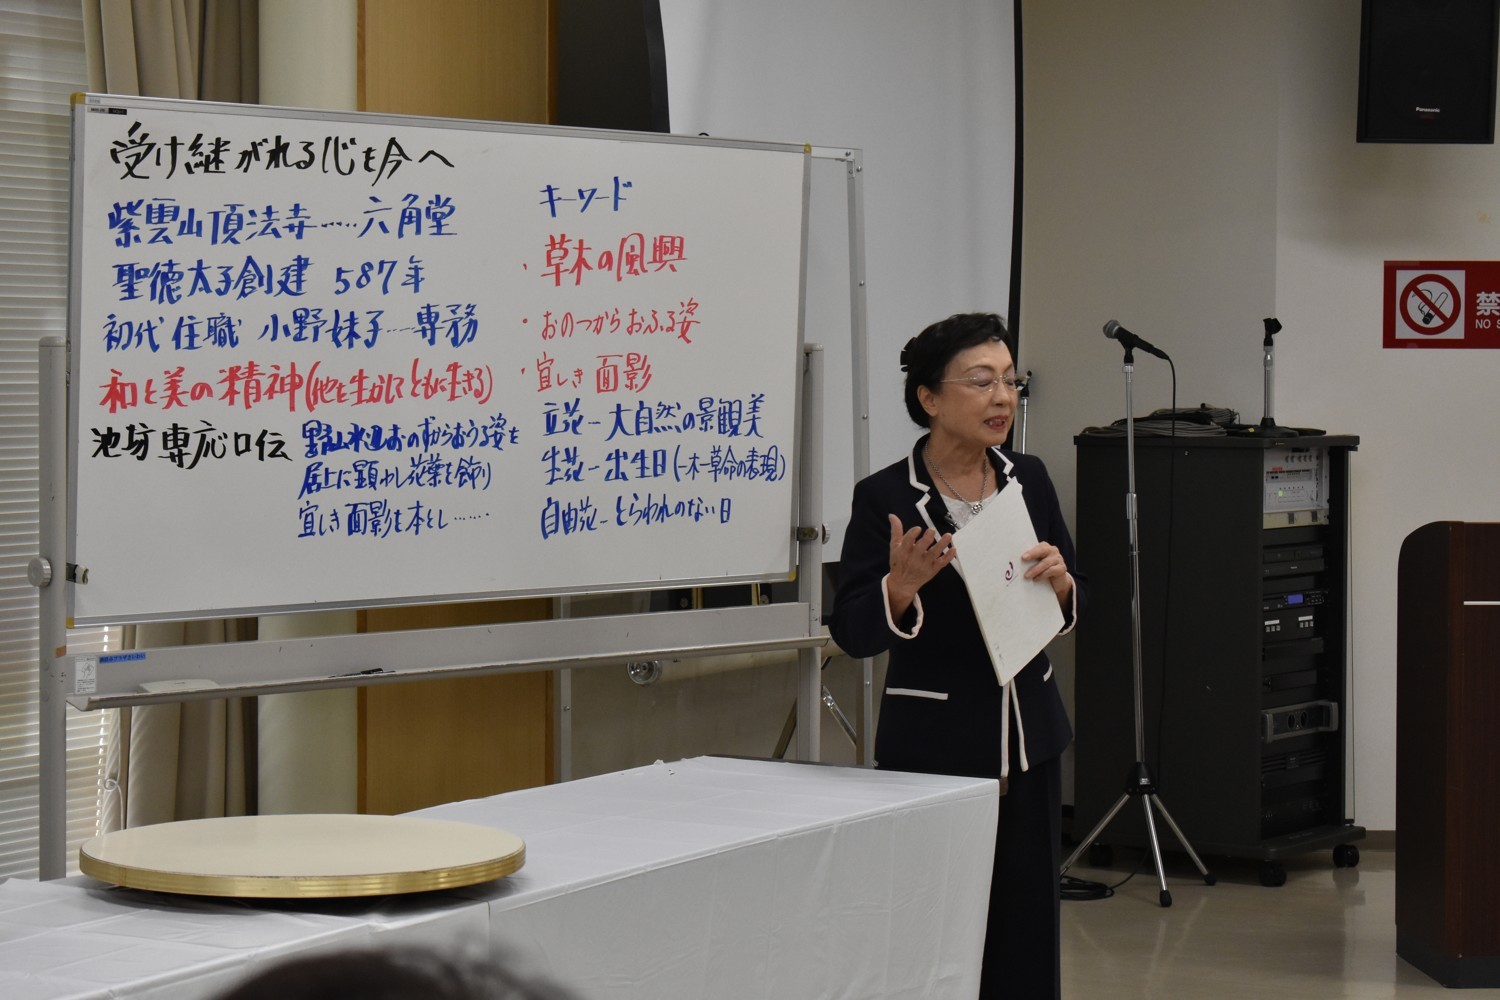 受け継がれる心を今へ
紫雲山頂法寺……六角堂
聖徳太子創建 587年
初代住職 小野妹子…専務
和と美の精神(他を生かしてともに生きる)
池坊専応口伝 野山水辺おのずからおうる姿を
居上に顕わし花葉を飾り
宜しき面影を本とし……
キーワード
・草木の風興
・おのつからおふる姿
・宜しき面影
立花-大自然の景観美
生花-出生日(一木一草命の表現)
自由花-とらわれのない日
Panasonic
禁
NO S